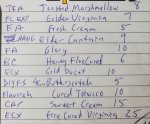 TFA Toasted Marshmallow 8
FLEXP Golden Virginia 7
FA Fresh Cream 5
Elder Custard 9
FA Glory 10
BC Honey Flue Cured 6
ECX Gold Ducat 10
DIYFS Butterscotch 5
Flavorah Cured Tobacco 10
CAP Sweet Cream 15
ECX Fire Cured Virginia 25